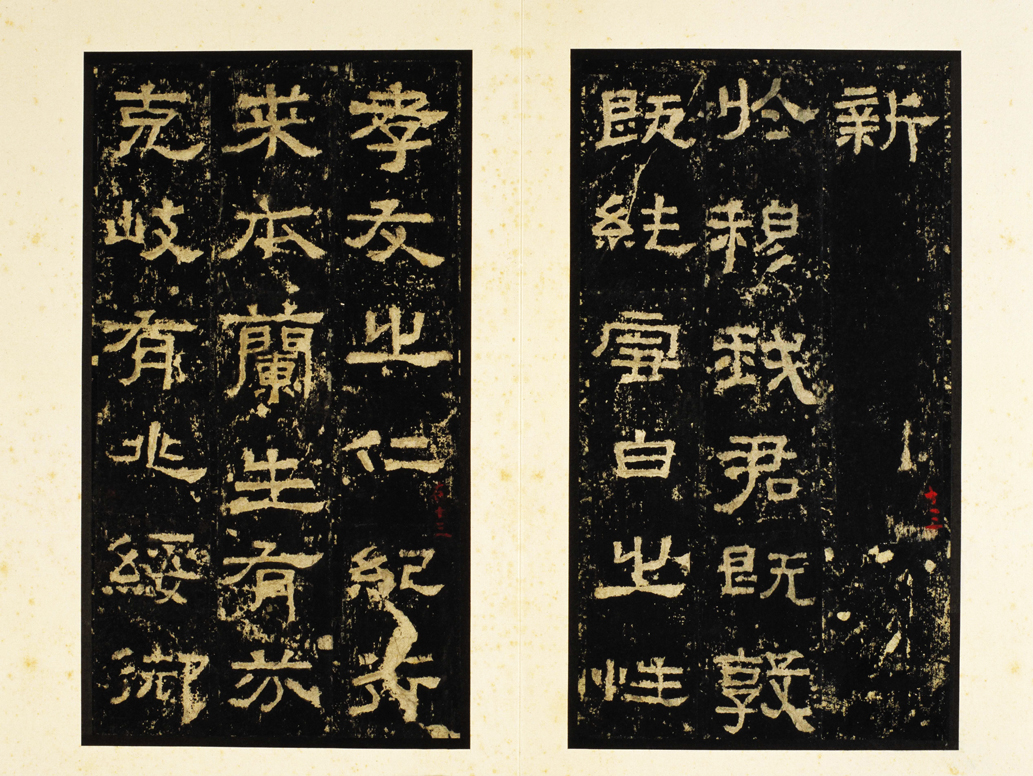 新
於穆我君既敦
既純雪白之性
孝友之仁紀行
來本蘭生有芬
克岐有兆綏御